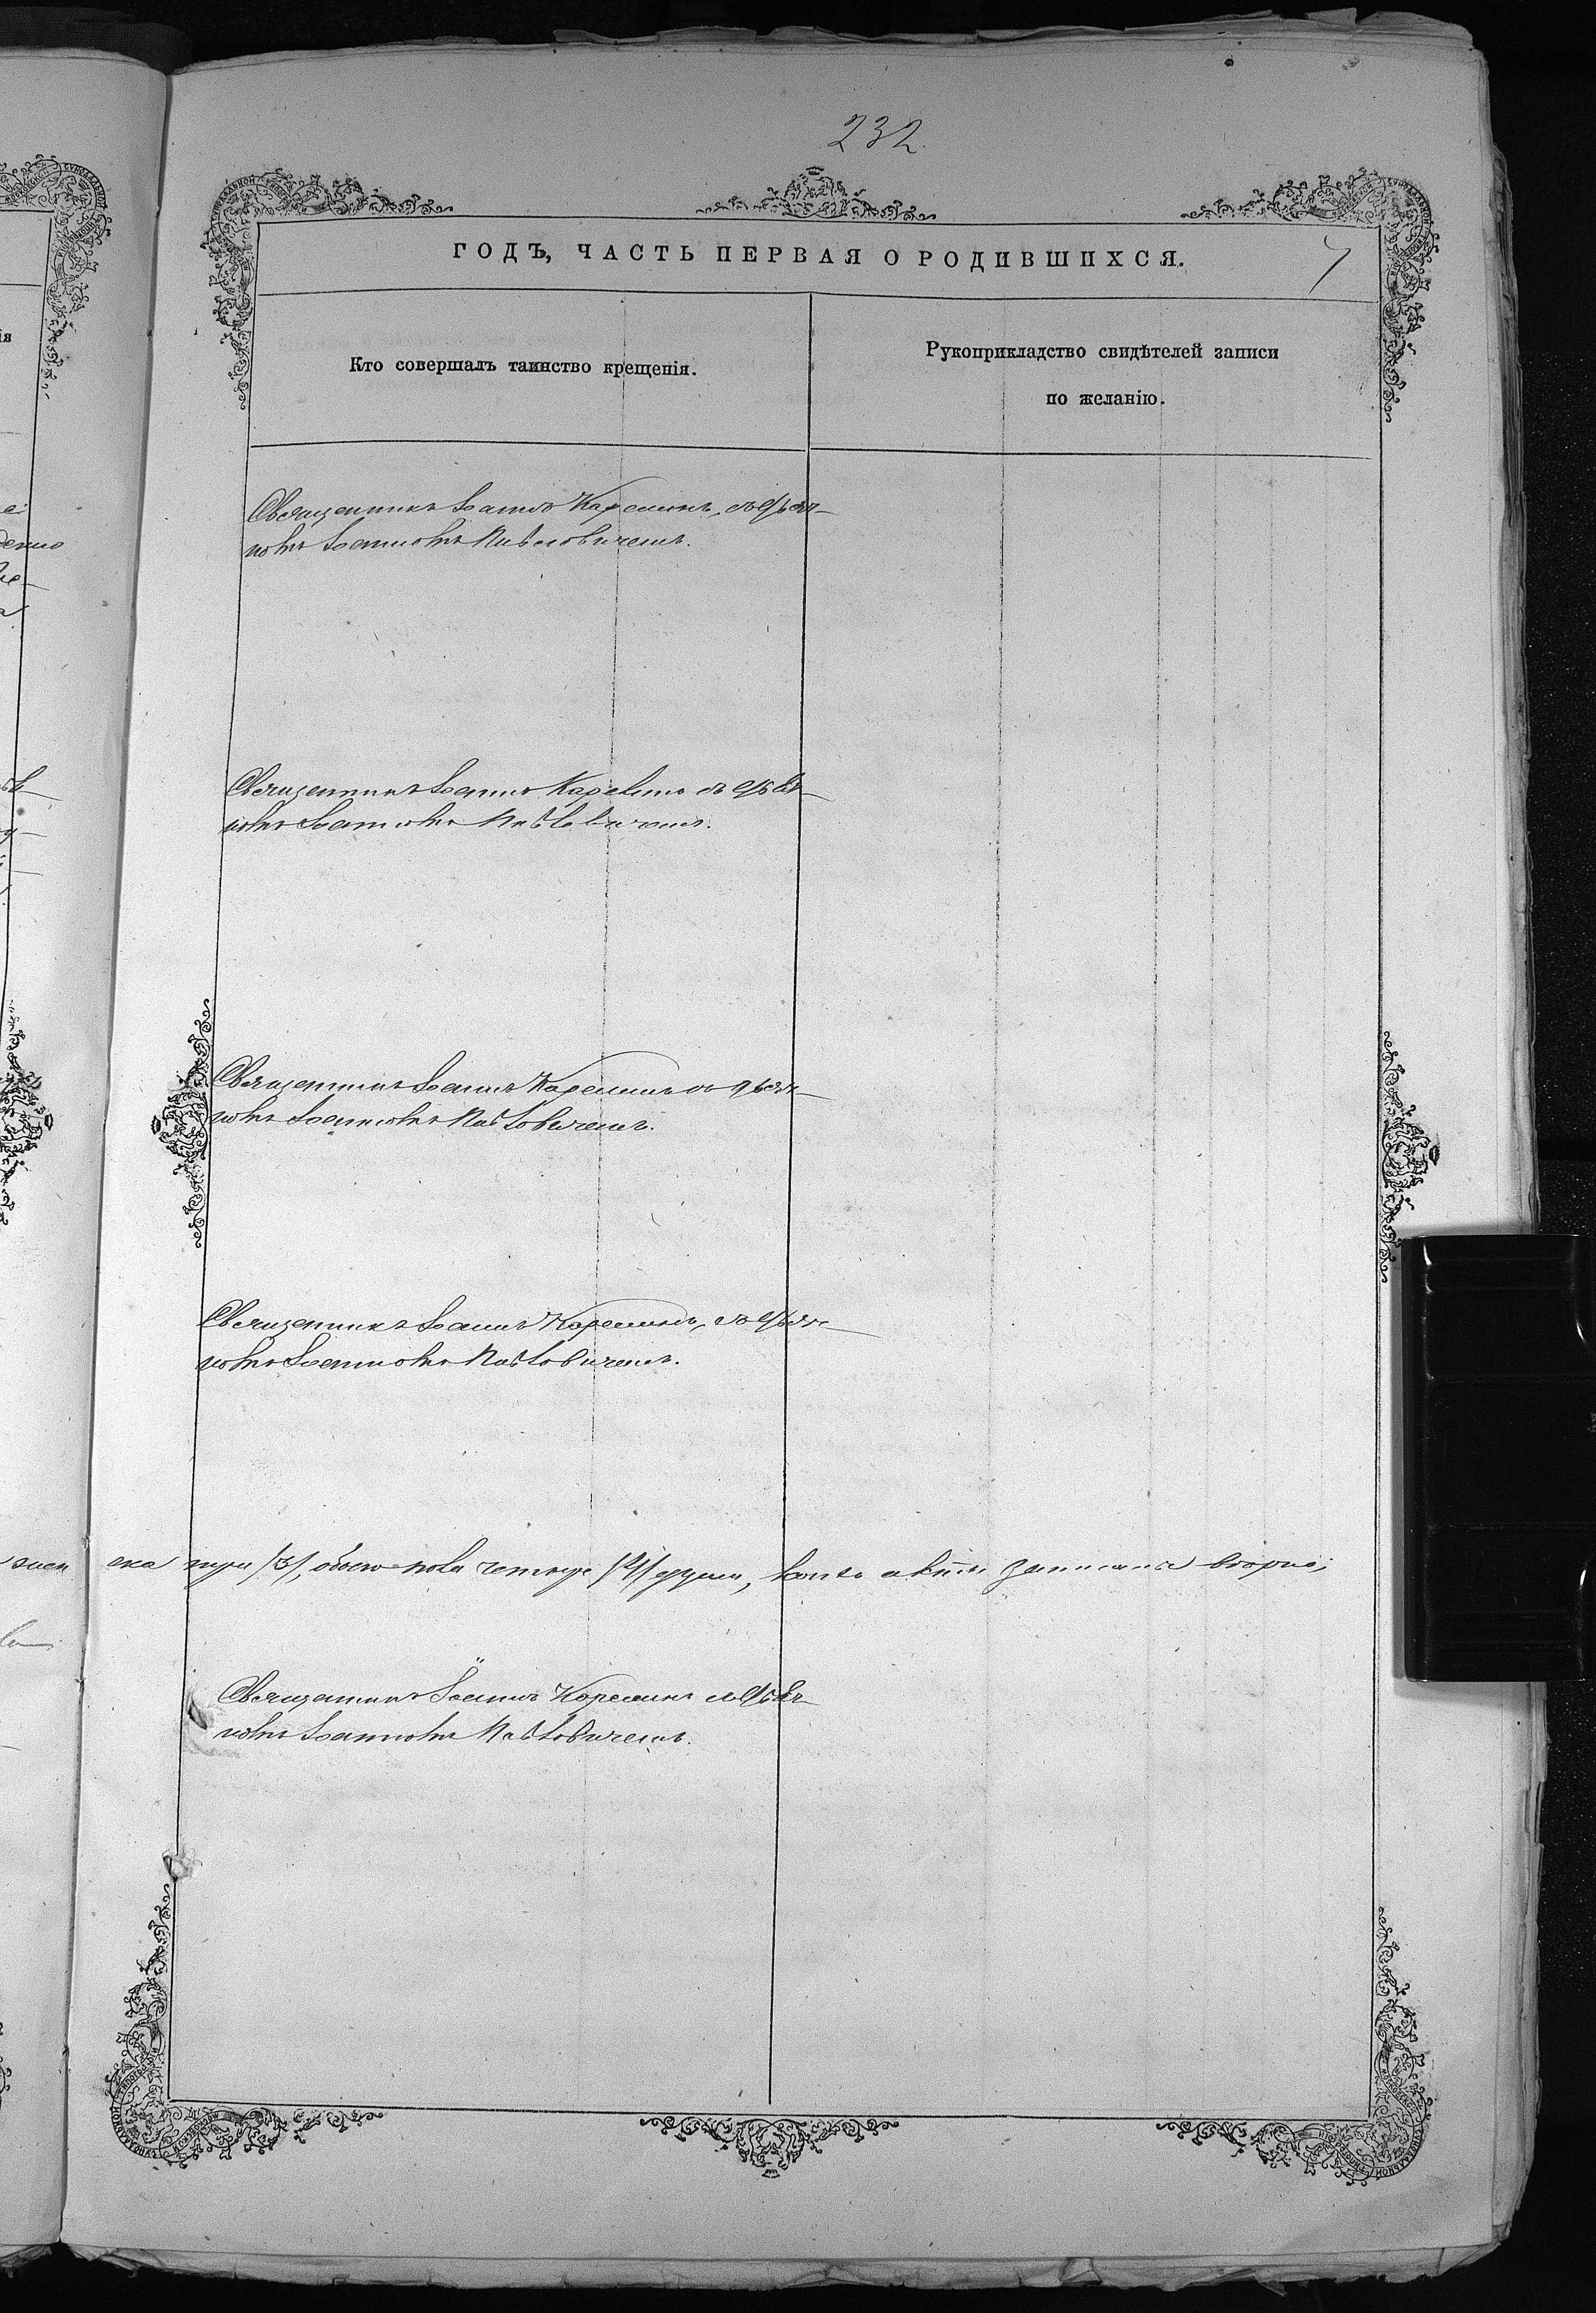 232.
ГОДЪ, ЧАСТЬ ПЕРВАЯ О РОДИВШИХСЯ.
7
Кто совершалъ таинство крещенія.
Рукоприкладство свидѣтелей записи
по желанію.
Священникъ Іоаннъ Карелинъ, съ дьяч-
комъ Іоанномъ Павловичемъ.
Священникъ Іоаннъ Карелинъ съ дьяч-
комъ Іоанномъ Павловичемъ.
Священникъ Іоаннъ Карелинъ съ дьяч-
комъ Іоанномъ Павловичемъ.
Священникъ Іоаннъ Карелинъ, съ дьяч-
комъ Іоанномъ Павловичемъ.
три /3/, обоего пола четыре /4/ души, записаны вѣрно;
Священникъ Іоаннъ Карелинъ съ дьяч-
комъ Іоанномъ Павловичемъ.